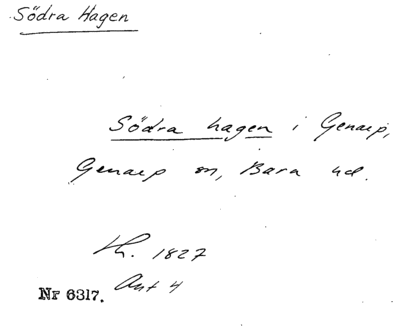 Södra Hagen
Södra hagen i Genarp,
Genarp sn, Bara hd.
Lh. 1827
Akt 4
Nr 6317.